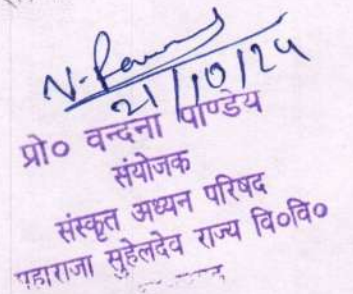 21/10/24
प्रो० वन्दना पाण्डेय
संयोजक
संस्कृत अध्यन परिषद
महाराजा सुहेलदेव राज्य वि०वि०